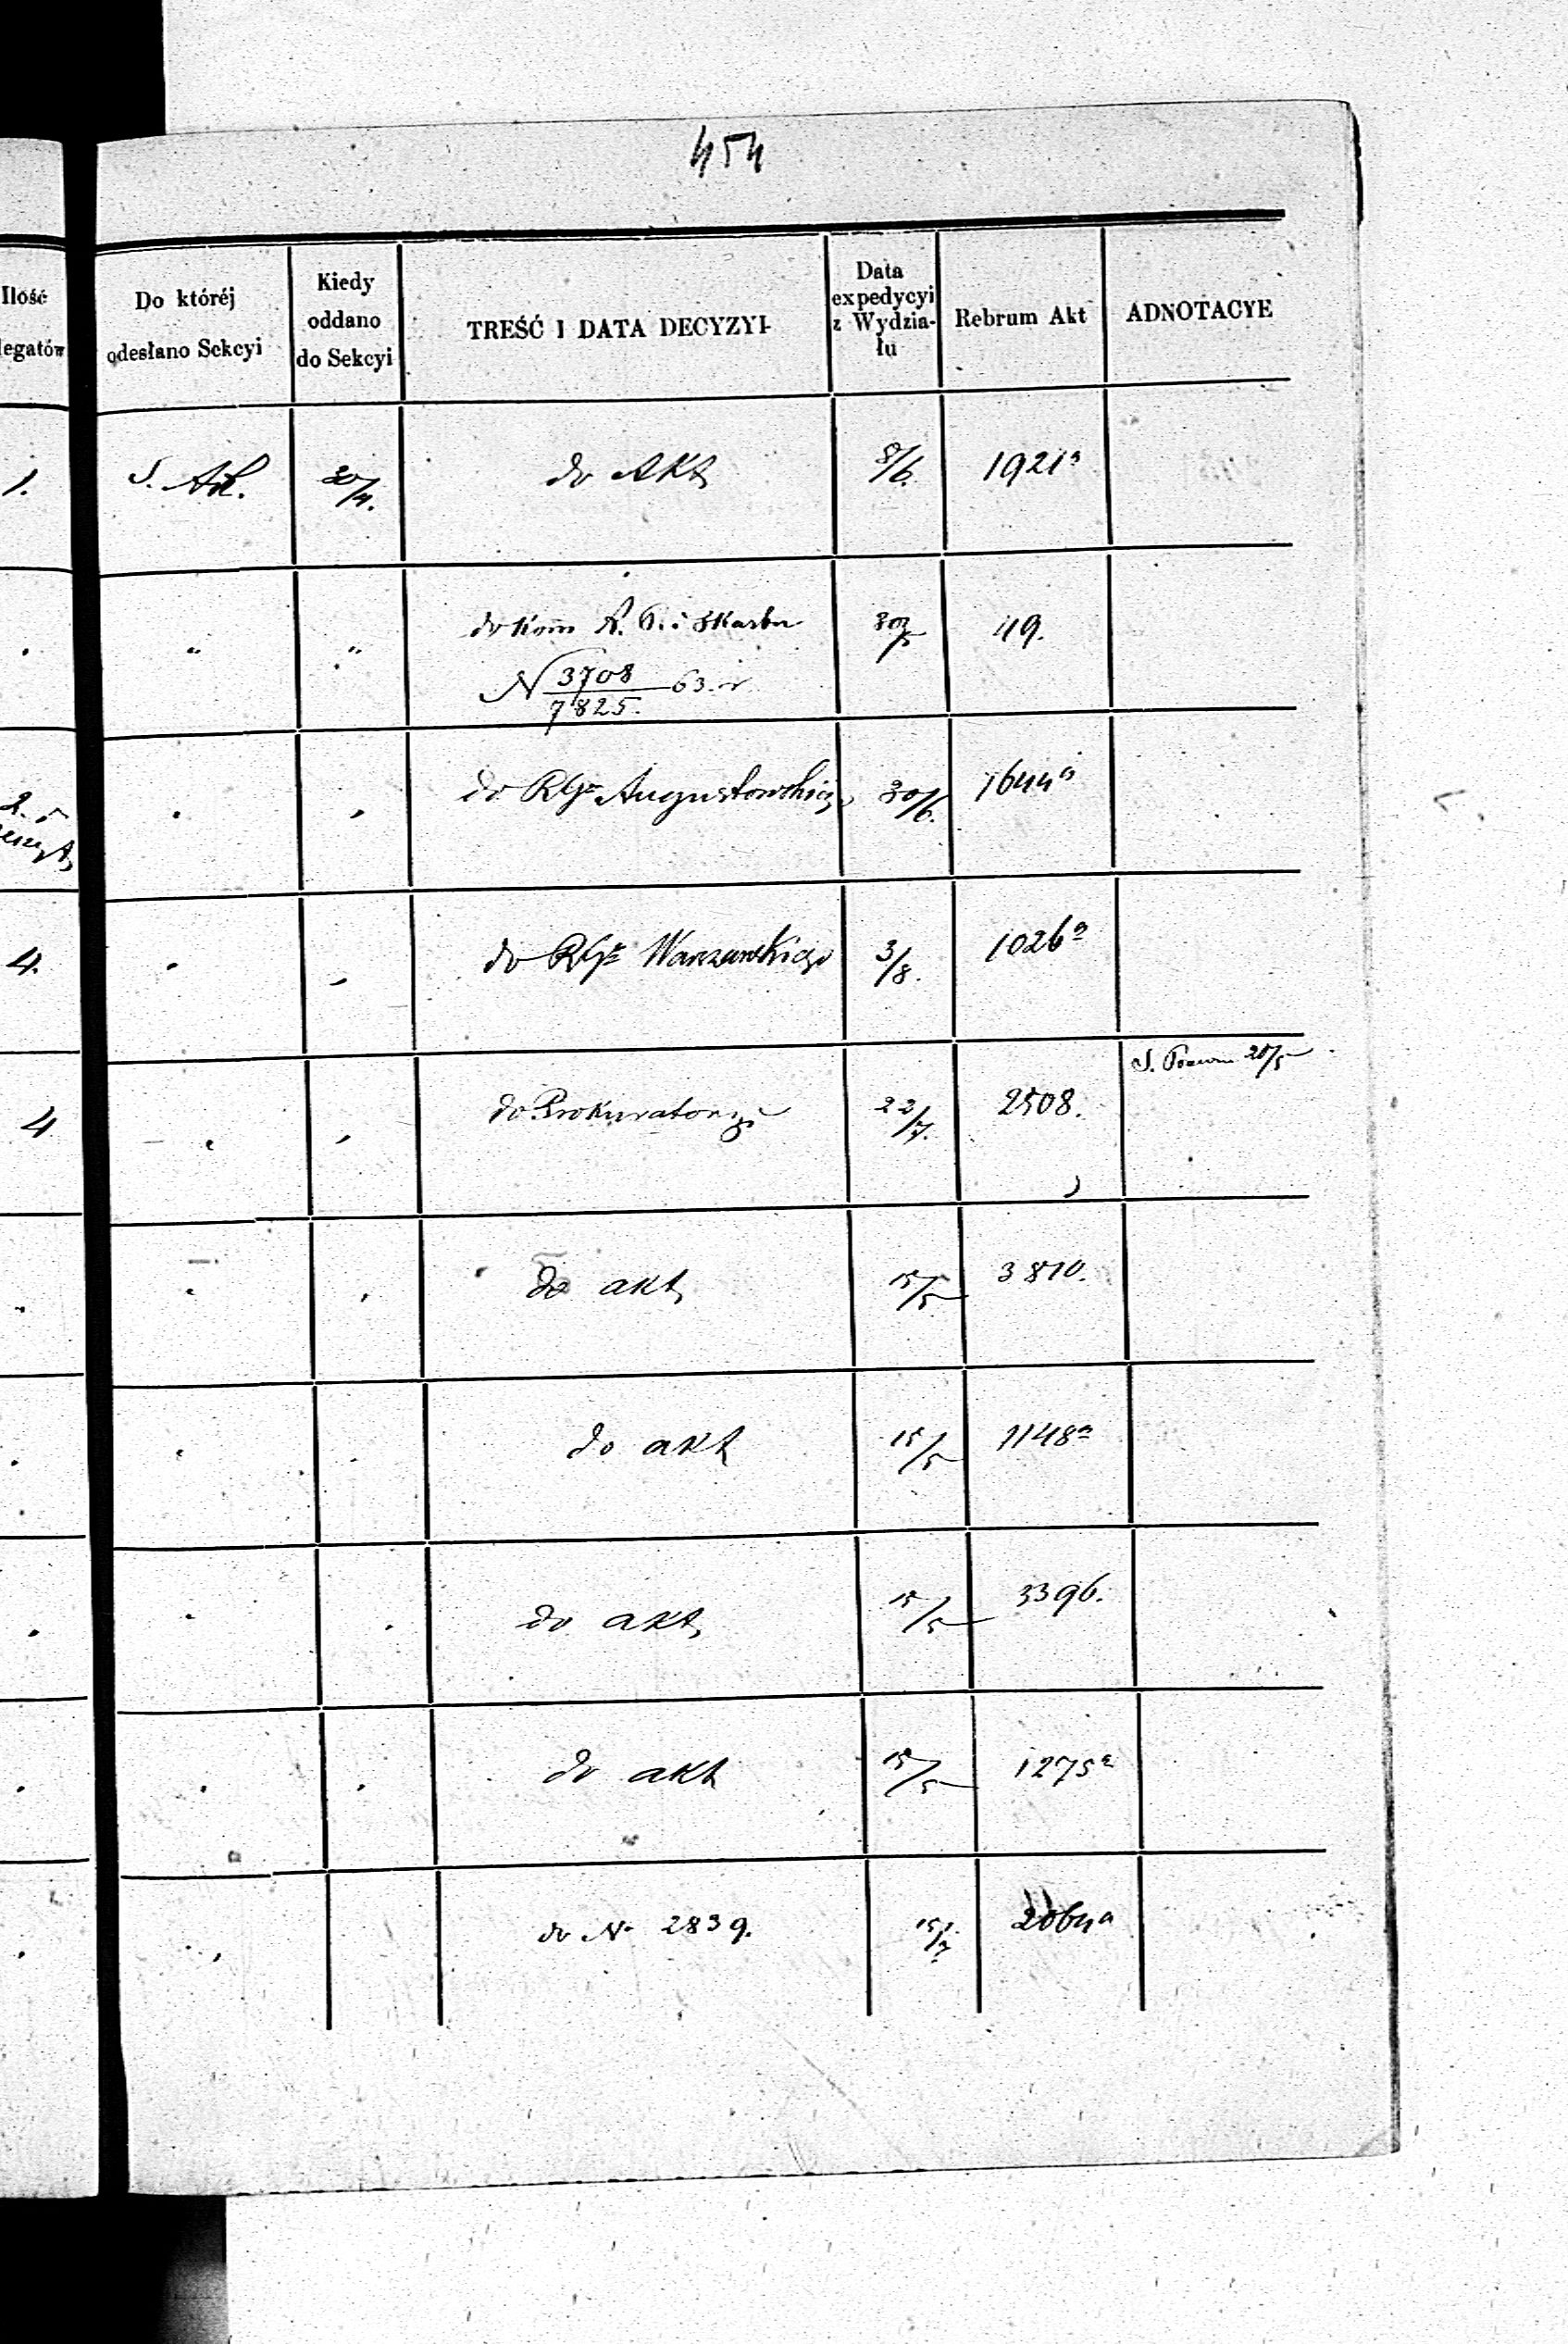 454
Ilość
legatów
Do któréj
odesłano Sekcyi
Kiedy
oddano
do Sekcyi
TREŚĆ I DATA DECYZYI
Data
expedycyi
z Wydzia-
łu
Rebrum Akt
ADNOTACYE
1. S. Ad. 30/4. do Akt 8/6. 1921a
" " do Kom R. P. i Skarbu 30/5 49.
N 3708/7825. 63 r
2. do RGo Augustowskiego 30/6. 1644a
4. do RGo Warszawskiego 3/8. 1026a
S. 20/5
4 do Prokuratoryi 22/7. 2508.
do akt 15/5 3810.
do akt 15/5 1148a
do akt 15/5 3396.
do akt 15/5 1275a
do No 2839. 15/7 2064a